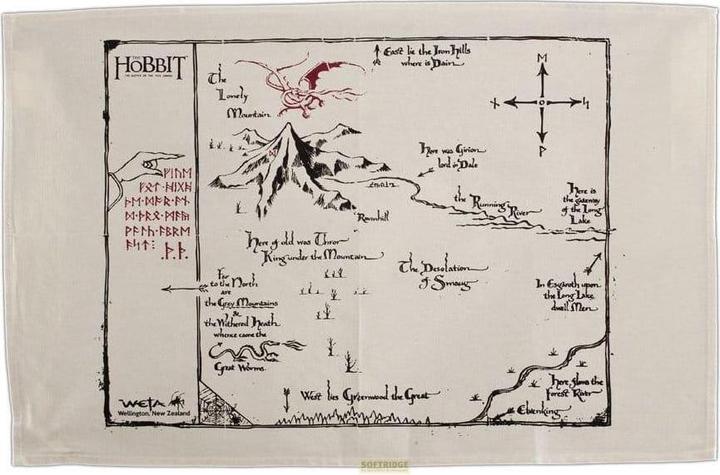 THE
HOBBIT
THE BATTLE OF THE FIVE ARMIES
ᚠᛁᚢᛖ
ᚠᚩᛏ᛫ᚻᛁᚷᚻ
Weta
Wellington, New Zealand
The
Lonely
Mountain
East lie the Iron Hills
where is Dain
Here was Girion
lord in Dale
the Running
River
Here is
the gateway
of the Long
Lake
Ravenhill
Here of old was Thror
King under the Mountain
The Desolation
of Smaug
In Esgaroth upon
the Long Lake
dwell Men
Far
to the North
are
the Grey Mountains
&
the Withered Heath
whence came the
Great Worms
West lies Greenwood the Great
Here flows the
Forest River
Elvenking
SOFTRIDGE